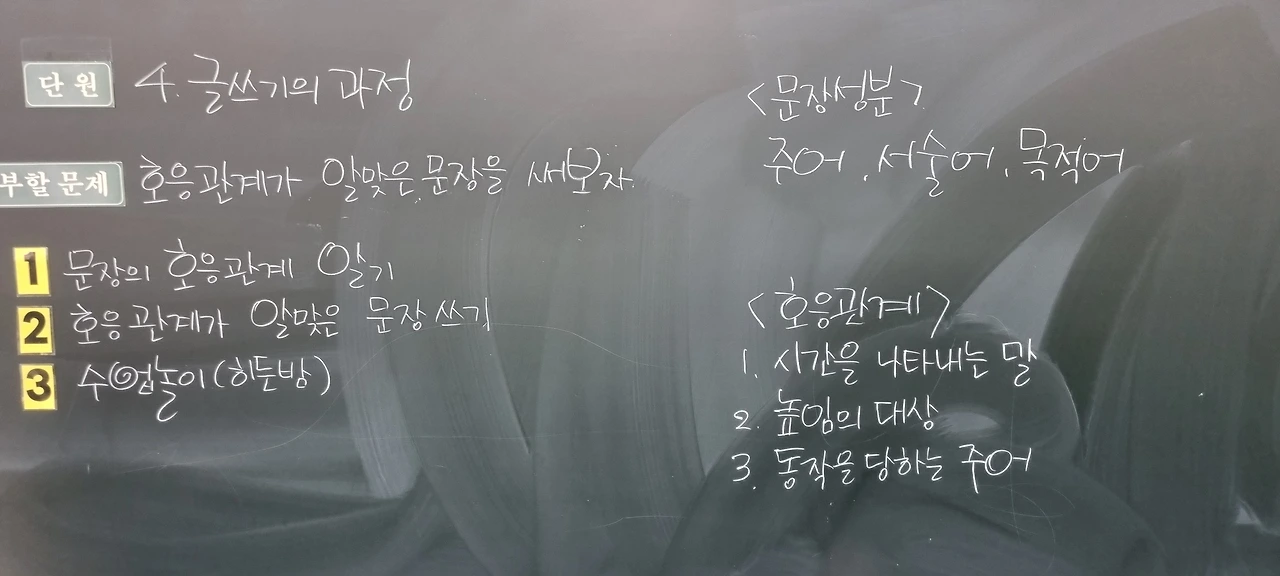 단원 4. 글쓰기의 과정
부할 문제 호응관계가 알맞은 문장을 써보자.
1 문장의 호응관계 알기
2 호응관계가 알맞은 문장 쓰기
3 수업놀이(히든밤)
<문장성분>
주어, 서술어, 목적어
<호응관계>
1. 시간을 나타내는 말
2. 높임의 대상
3. 동작을 당하는 주어